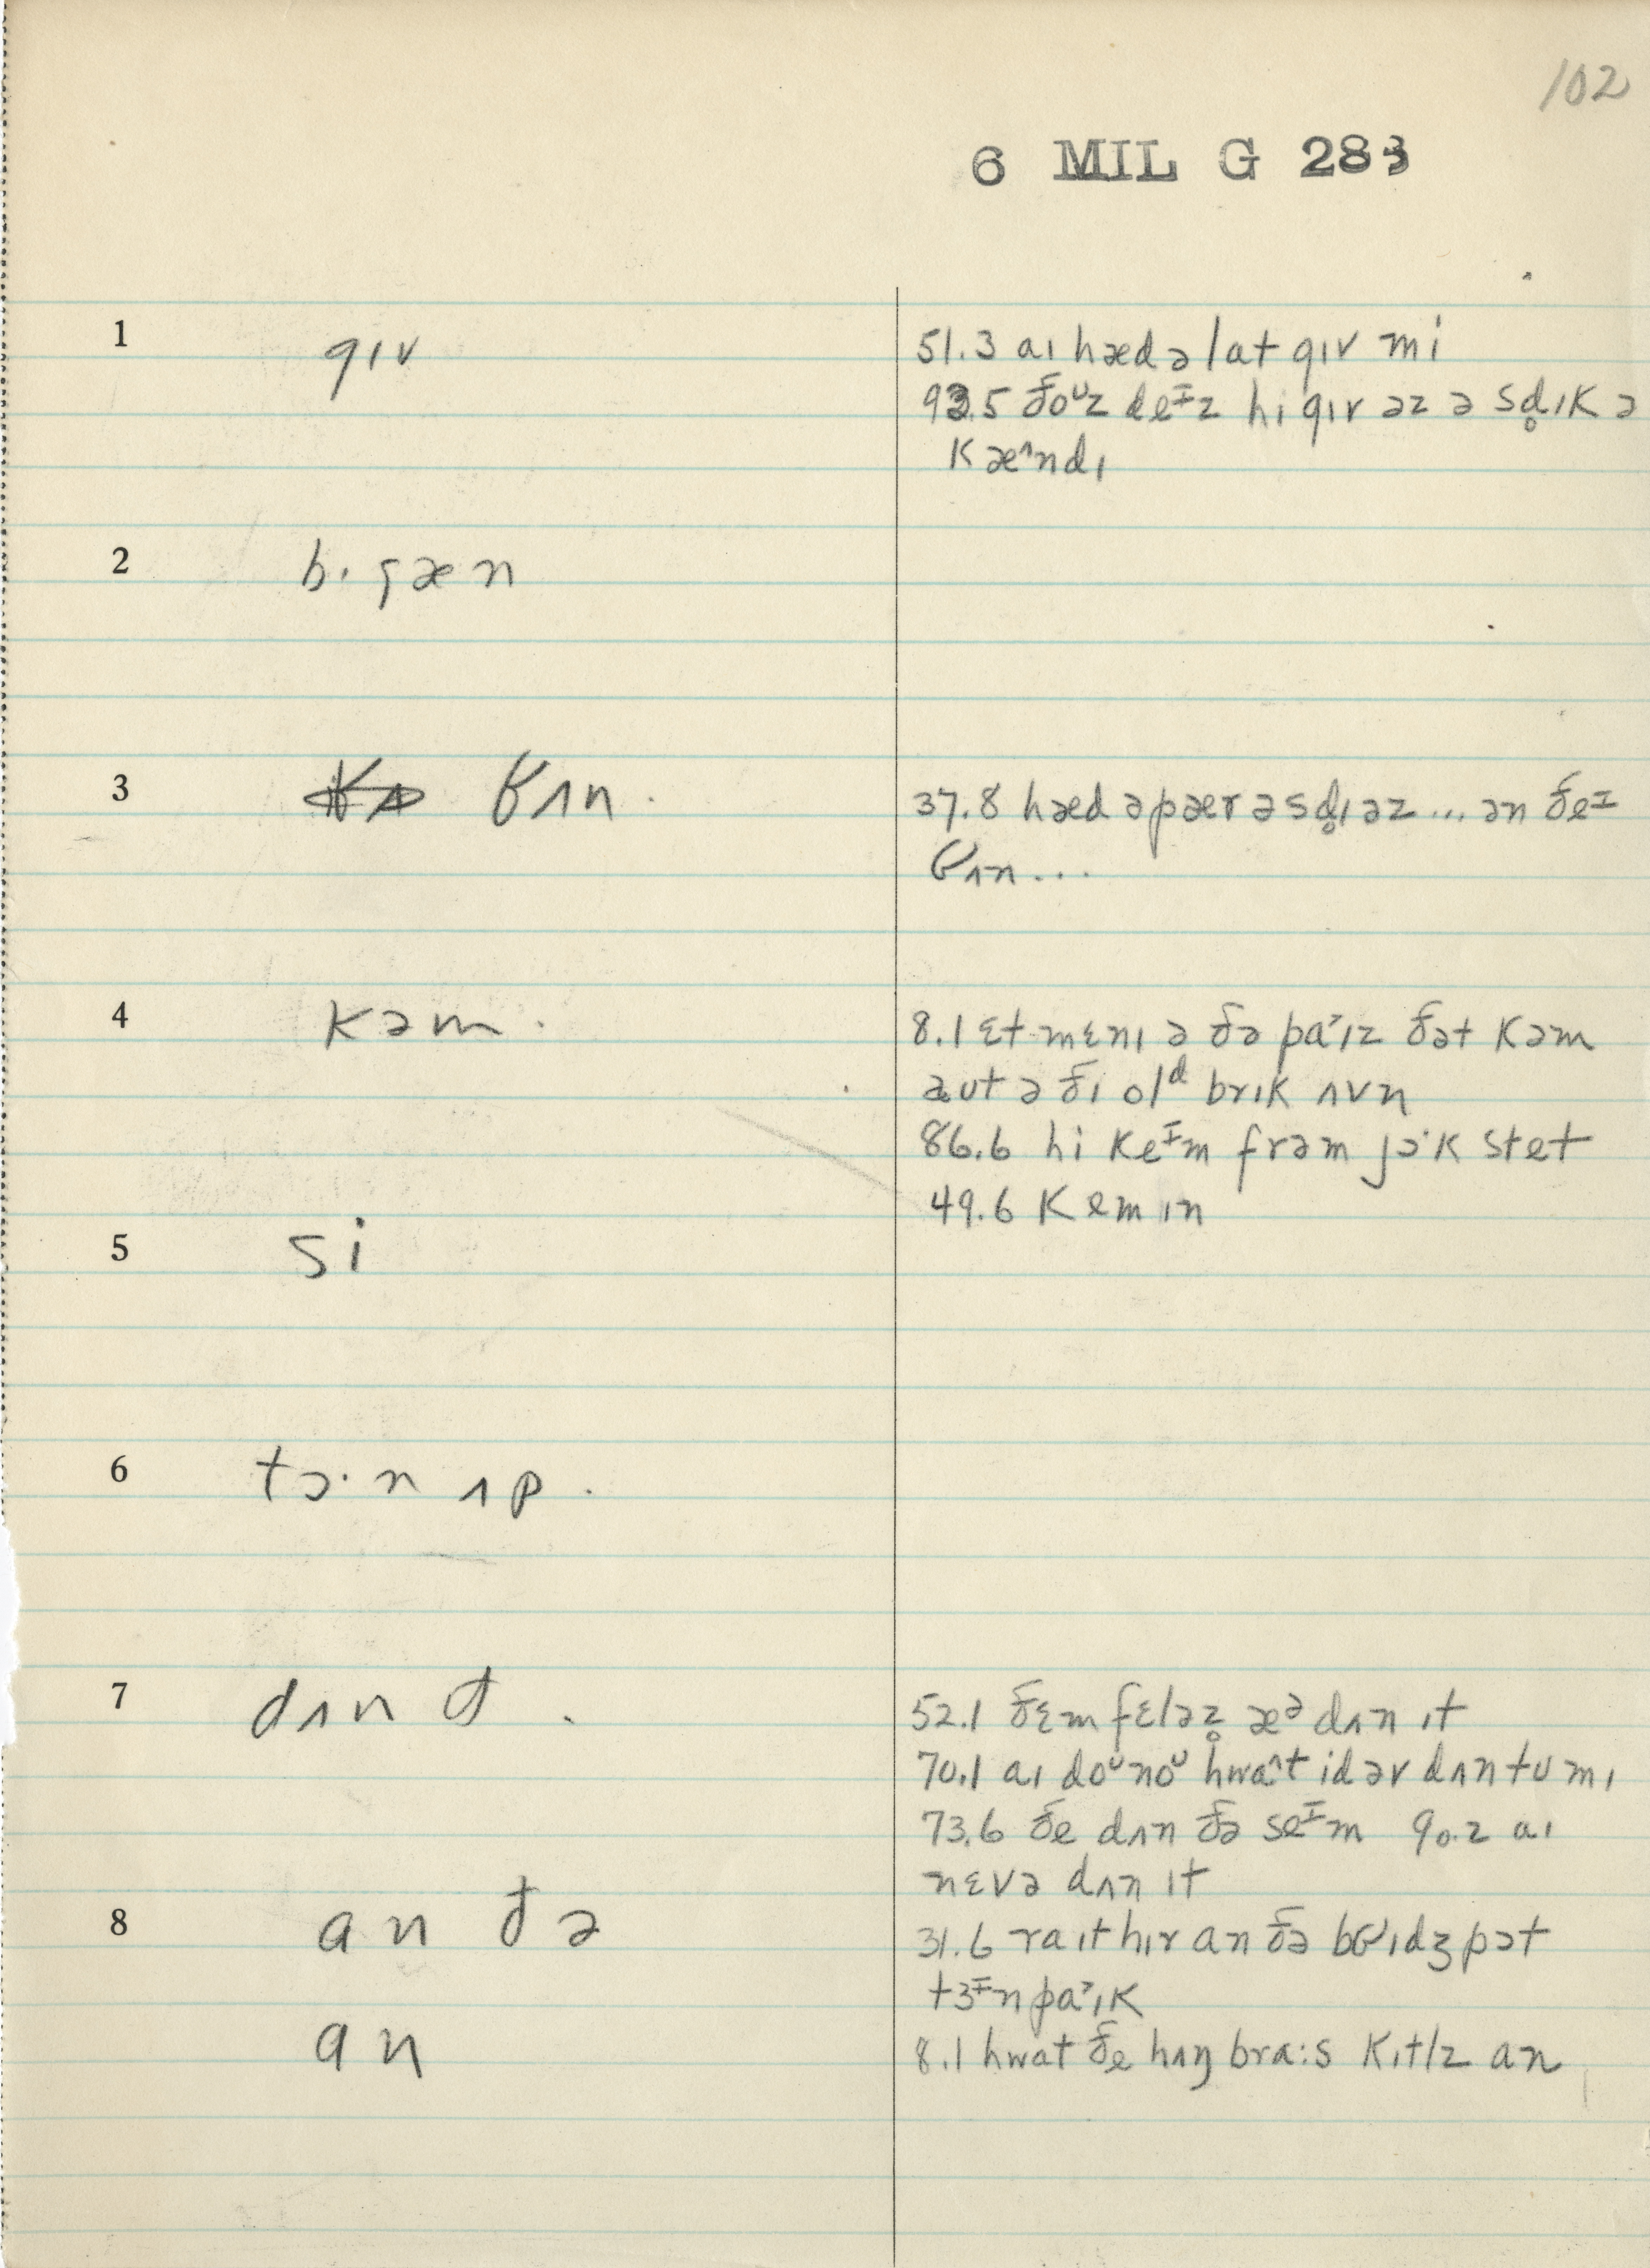 102
6 MIL G 283
1 gɪv
51.3 aɪ hæd ə lat gɪv mi
93.5 ðoᶷz deᶦz hi gɪv əz ə sd̥ɪk ə
kæ^ndɪ
2 bɪgæn
3 ɞʌn.
37.8 hæd ə pær ə sd̥ɪəz ... ən ðeᶦ
ɞʌn...
4 kəm.
8.1 ɛt mɛnɪ ə ðə pa˃ɪz ðət kəm
aut ə ðɪ olᵈ brɪk ʌvn
86.6 hi keᶦm frəm jɔ·k stet
49.6 kem ɪn
5 si
6 tɔ·n ʌp.
7 dʌn ɪt.
52.1 ðɛm fɛləz̥ æᵊ dʌn ɪt
70.1 aɪ doᶷnoᶷ hwa^t idər dʌn tu mɪ
73.6 ðe dʌn ðə seᶦm 90.2 aɪ
nɛvə dʌn ɪt
8 an ðə
31.6 raɪt hɪr an ðə brɪdʒ pɔt
tɜᶦn pa˃ɪk
an
8.1 hwat ðe hʌŋ bra:s kɪtlz an